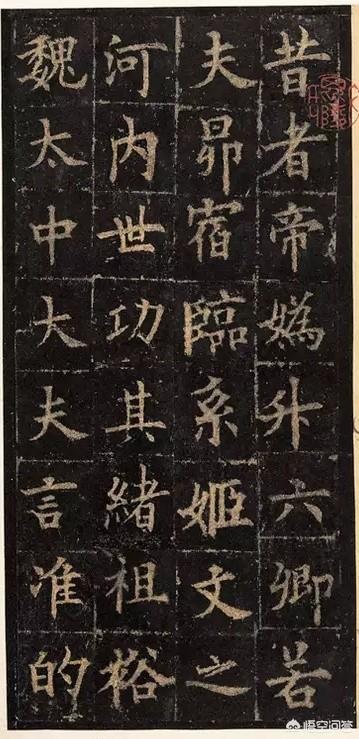 昔者帝媯升六卿若
夫昴宿臨系姬文之
河内世功其緒祖裕
魏太中大夫言准的
悟空问答